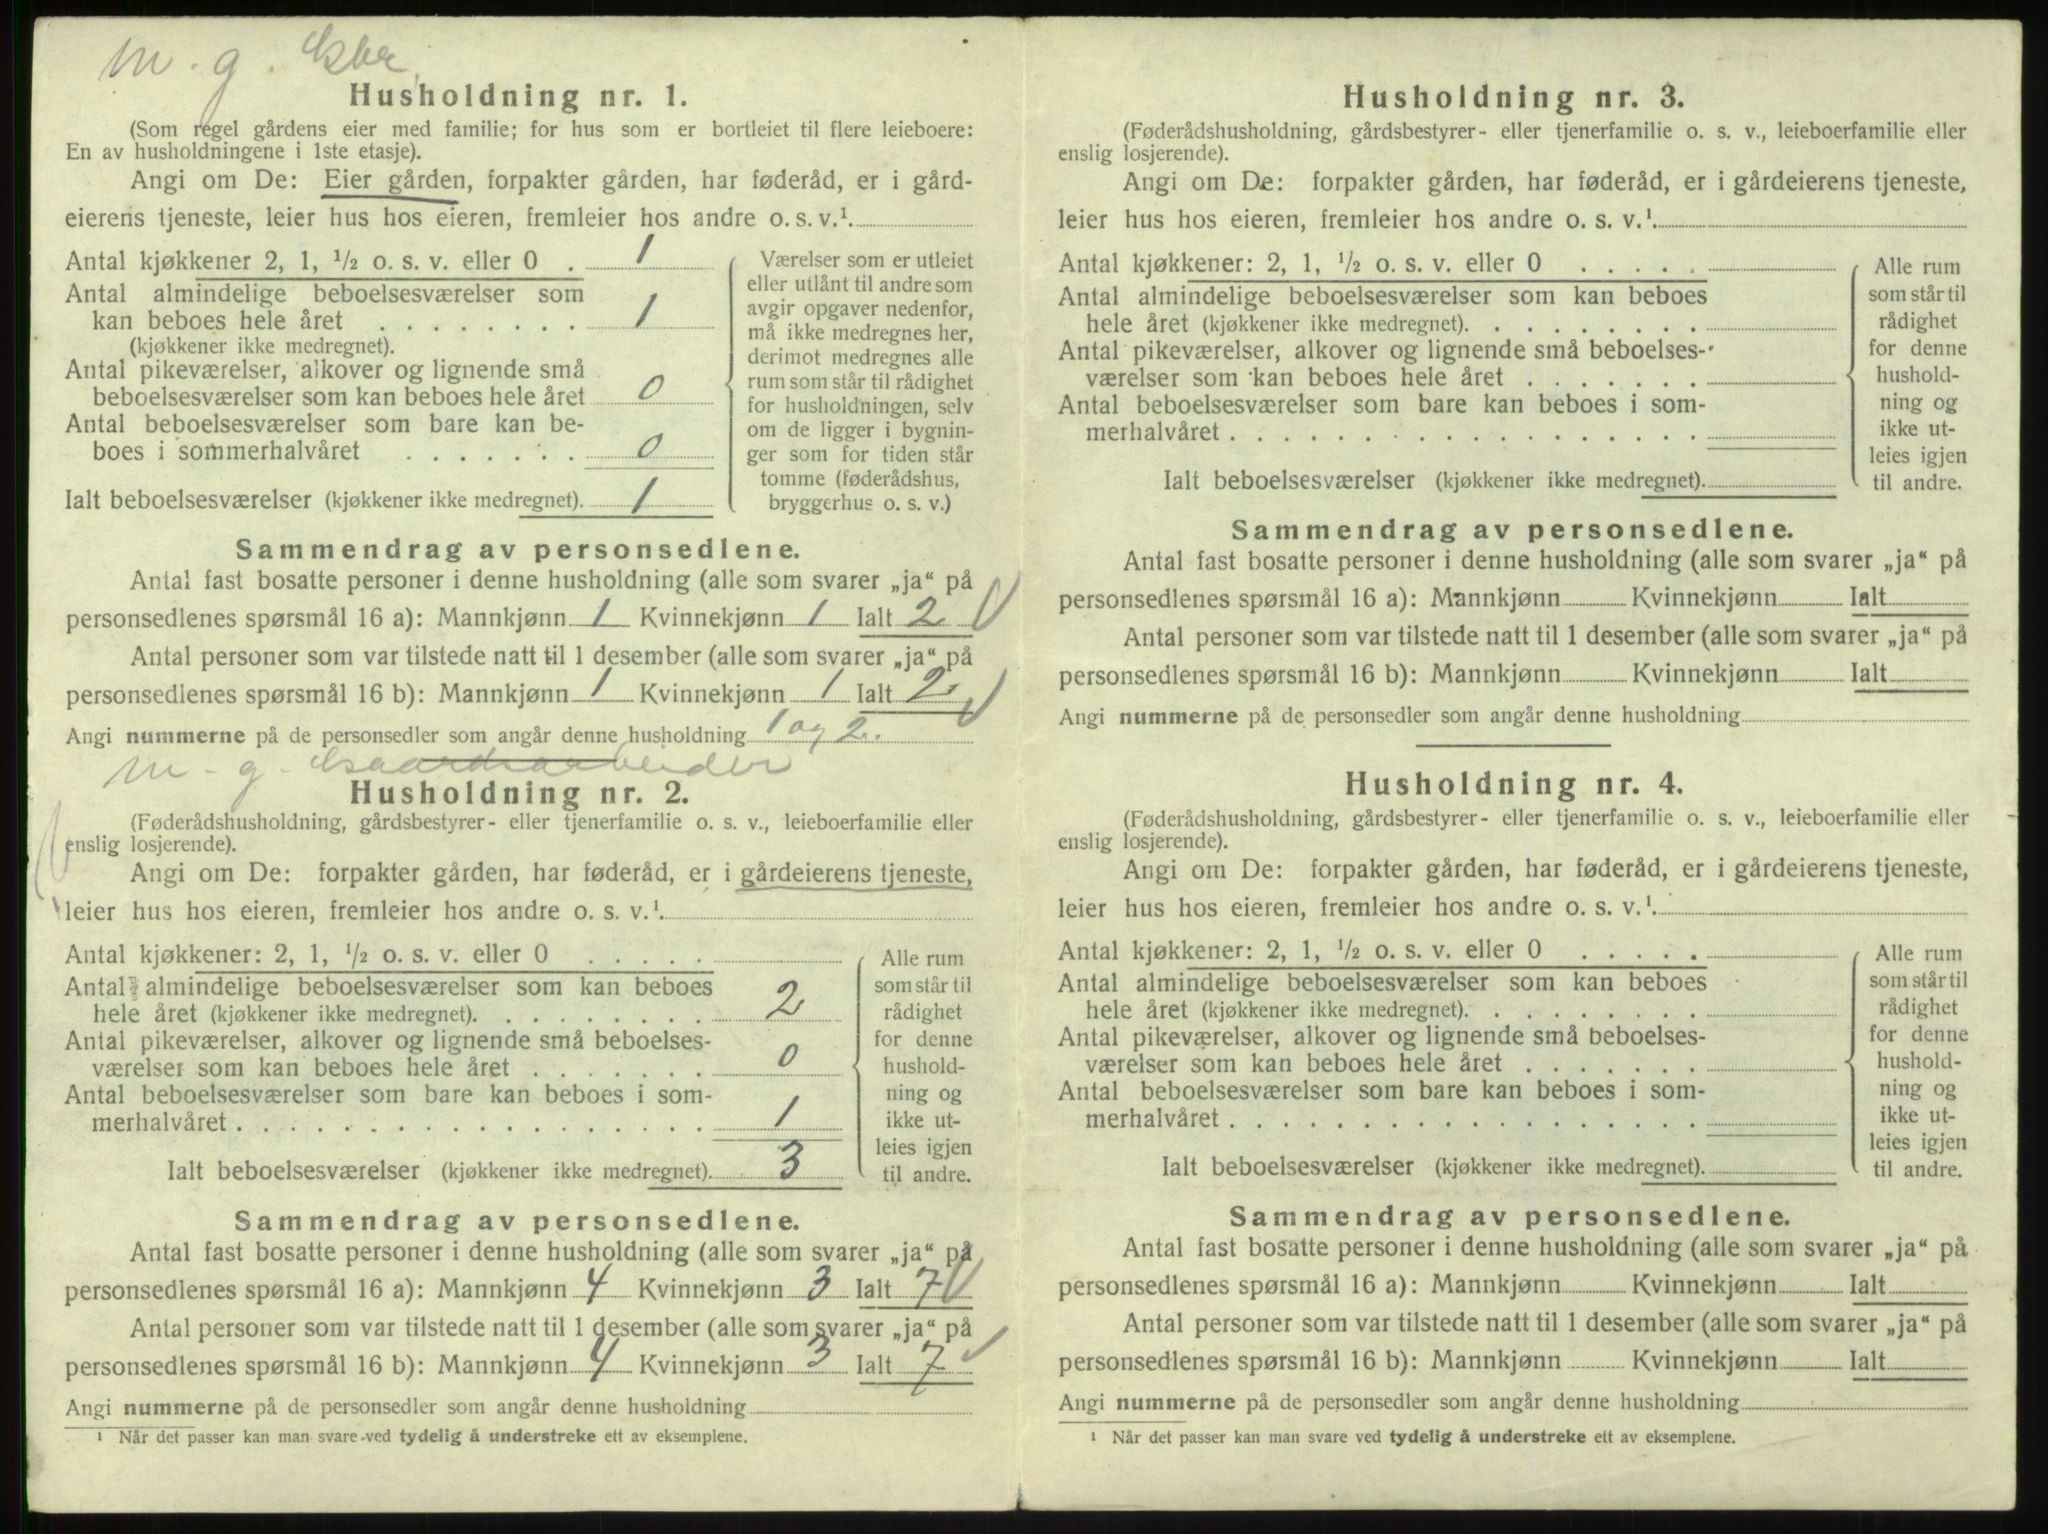 m. g. Gbr.
Husholdning nr. 1.
(Som regel gårdens eier med familie; for hus som er bortleiet til flere leieboere:
En av husholdningene i 1ste etasje).
Angi om De: Eier gården, forpakter gården, har føderåd, er i gård-
eierens tjeneste, leier hus hos eieren, fremleier hos andre o. s. v.¹.
Antal kjøkkener 2, 1, ½ o. s. v. eller 0 . 1
Antal almindelige beboelsesværelser som
kan beboes hele året . . . . . . . . 1
(kjøkkener ikke medregnet).
Antal pikeværelser, alkover og lignende små
beboelsesværelser som kan beboes hele året 0
Antal beboelsesværelser som bare kan be-
boes i sommerhalvåret . . . . . . . 0
Ialt beboelsesværelser (kjøkkener ikke medregnet). 1
Værelser som er utleiet
eller utlånt til andre som
avgir opgaver nedenfor,
må ikke medregnes her,
derimot medregnes alle
rum som står til rådighet
for husholdningen, selv
om de ligger i bygnin-
ger som for tiden står
tomme (føderådshus,
bryggerhus o. s. v.)
Sammendrag av personsedlene.
Antal fast bosatte personer i denne husholdning (alle som svarer „ja“ på
personsedlenes spørsmål 16 a): Mannkjønn 1 Kvinnekjønn 1 Ialt 2 √
Antal personer som var tilstede natt til 1 desember (alle som svarer „ja“ på
personsedlenes spørsmål 16 b): Mannkjønn 1 Kvinnekjønn 1 Ialt 2 √
Angi nummerne på de personsedler som angår denne husholdning 1 og 2.
m. g. Gaardsarbeider
Husholdning nr. 2.
(Føderådshusholdning, gårdsbestyrer- eller tjenerfamilie o. s. v., leieboerfamilie eller
enslig losjerende).
Angi om De: forpakter gården, har føderåd, er i gårdeierens tjeneste,
leier hus hos eieren, fremleier hos andre o. s. v.¹.
Antal kjøkkener: 2, 1, ½ o. s. v. eller 0 . . . . .
Antal almindelige beboelsesværelser som kan beboes
hele året (kjøkkener ikke medregnet). . . . . . . . . 2
Antal pikeværelser, alkover og lignende små beboelses-
værelser som kan beboes hele året . . . . . . . 0
Antal beboelsesværelser som bare kan beboes i som-
merhalvåret . . . . . . . . . . . . . . . . . . 1
Ialt beboelsesværelser (kjøkkener ikke medregnet). 3
Alle rum
som står til
rådighet
for denne
hushold-
ning og
ikke ut-
leies igjen
til andre.
Sammendrag av personsedlene.
Antal fast bosatte personer i denne husholdning (alle som svarer „ja“ på
personsedlenes spørsmål 16 a): Mannkjønn 4 Kvinnekjønn 3 Ialt 7 √
Antal personer som var tilstede natt til 1 desember (alle som svarer „ja“ på
personsedlenes spørsmål 16 b): Mannkjønn 4 Kvinnekjønn 3 Ialt 7 √
Angi nummerne på de personsedler som angår denne husholdning
¹ Når det passer kan man svare ved tydelig å understreke ett av eksemplene.
Husholdning nr. 3.
(Føderådshusholdning, gårdsbestyrer- eller tjenerfamilie o. s. v., leieboerfamilie eller
enslig losjerende).
Angi om De: forpakter gården, har føderåd, er i gårdeierens tjeneste,
leier hus hos eieren, fremleier hos andre o. s. v.¹.
Antal kjøkkener: 2, 1, ½ o. s. v. eller 0 . . . . .
Antal almindelige beboelsesværelser som kan beboes
hele året (kjøkkener ikke medregnet). . . . . . . . .
Antal pikeværelser, alkover og lignende små beboelses-
værelser som kan beboes hele året . . . . . . .
Antal beboelsesværelser som bare kan beboes i som-
merhalvåret . . . . . . . . . . . . . . . . . .
Ialt beboelsesværelser (kjøkkener ikke medregnet).
Alle rum
som står til
rådighet
for denne
hushold-
ning og
ikke ut-
leies igjen
til andre.
Sammendrag av personsedlene.
Antal fast bosatte personer i denne husholdning (alle som svarer „ja“ på
personsedlenes spørsmål 16 a): Mannkjønn Kvinnekjønn Ialt
Antal personer som var tilstede natt til 1 desember (alle som svarer „ja“ på
personsedlenes spørsmål 16 b): Mannkjønn Kvinnekjønn Ialt
Angi nummerne på de personsedler som angår denne husholdning
Husholdning nr. 4.
(Føderådshusholdning, gårdsbestyrer- eller tjenerfamilie o. s. v., leieboerfamilie eller
enslig losjerende).
Angi om De: forpakter gården, har føderåd, er i gårdeierens tjeneste,
leier hus hos eieren, fremleier hos andre o. s. v.¹.
Antal kjøkkener: 2, 1, ½ o. s. v. eller 0 . . . . .
Antal almindelige beboelsesværelser som kan beboes
hele året (kjøkkener ikke medregnet). . . . . . . . .
Antal pikeværelser, alkover og lignende små beboelses-
værelser som kan beboes hele året . . . . . . .
Antal beboelsesværelser som bare kan beboes i som-
merhalvåret . . . . . . . . . . . . . . . . . .
Ialt beboelsesværelser (kjøkkener ikke medregnet).
Alle rum
som står til
rådighet
for denne
hushold-
ning og
ikke ut-
leies igjen
til andre.
Sammendrag av personsedlene.
Antal fast bosatte personer i denne husholdning (alle som svarer „ja“ på
personsedlenes spørsmål 16 a): Mannkjønn Kvinnekjønn Ialt
Antal personer som var tilstede natt til 1 desember (alle som svarer „ja“ på
personsedlenes spørsmål 16 b): Mannkjønn Kvinnekjønn Ialt
Angi nummerne på de personsedler som angår denne husholdning
¹ Når det passer kan man svare ved tydelig å understreke ett av eksemplene.